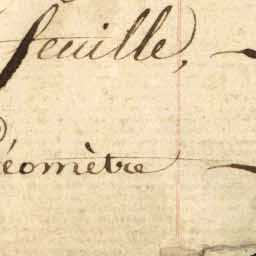 feuille,
éomètre